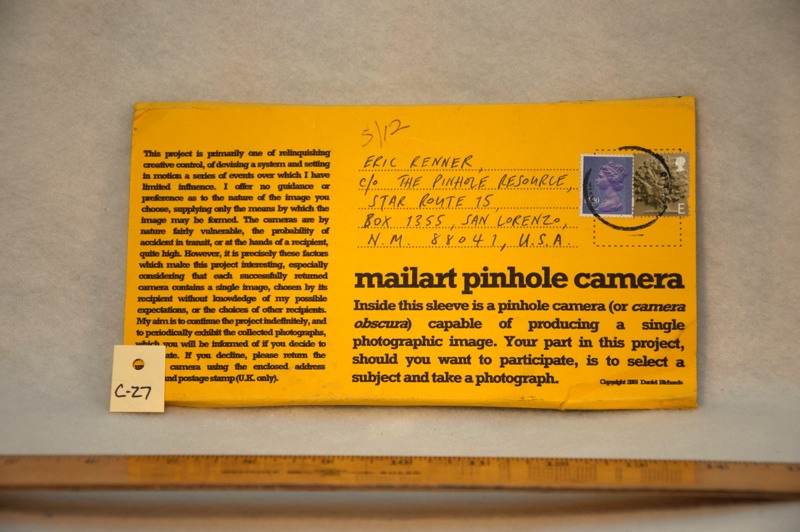 This project is primarily one of relinquishing
creative control, of devising a system and setting
in motion a series of events over which I have
limited influence. I offer no guidance or
preference as to the nature of the image you
choose, supplying only the means by which the
image may be formed. The cameras are by
nature fairly vulnerable, the probability of
accident in transit, or at the hands of a recipient,
quite high. However, it is precisely these factors
which make this project interesting, especially
considering that each successfully returned
camera contains a single image, chosen by its
recipient without knowledge of my possible
expectations, or the choices of other recipients.
My aim is to continue the project indefinitely, and
to periodically exhibit the collected photographs,
which you will be informed of if you decide to
ate. If you decline, please return the
camera using the enclosed address
nd postage stamp (U.K. only).
C-27
5/12
ERIC RENNER,
c/o THE PINHOLE RESOURCE,
STAR ROUTE 15
BOX 1355, SAN LORENZO,
N.M. 88041, U.S.A.
E
mailart pinhole camera
Inside this sleeve is a pinhole camera (or camera
obscura) capable of producing a single
photographic image. Your part in this project,
should you want to participate, is to select a
subject and take a photograph.
Copyright 2001 Daniel Richards